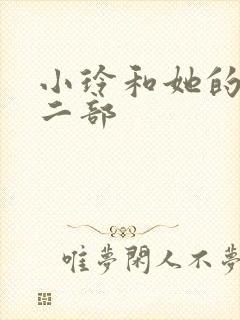 小玲和她的
二部
唯夢閑人不夢